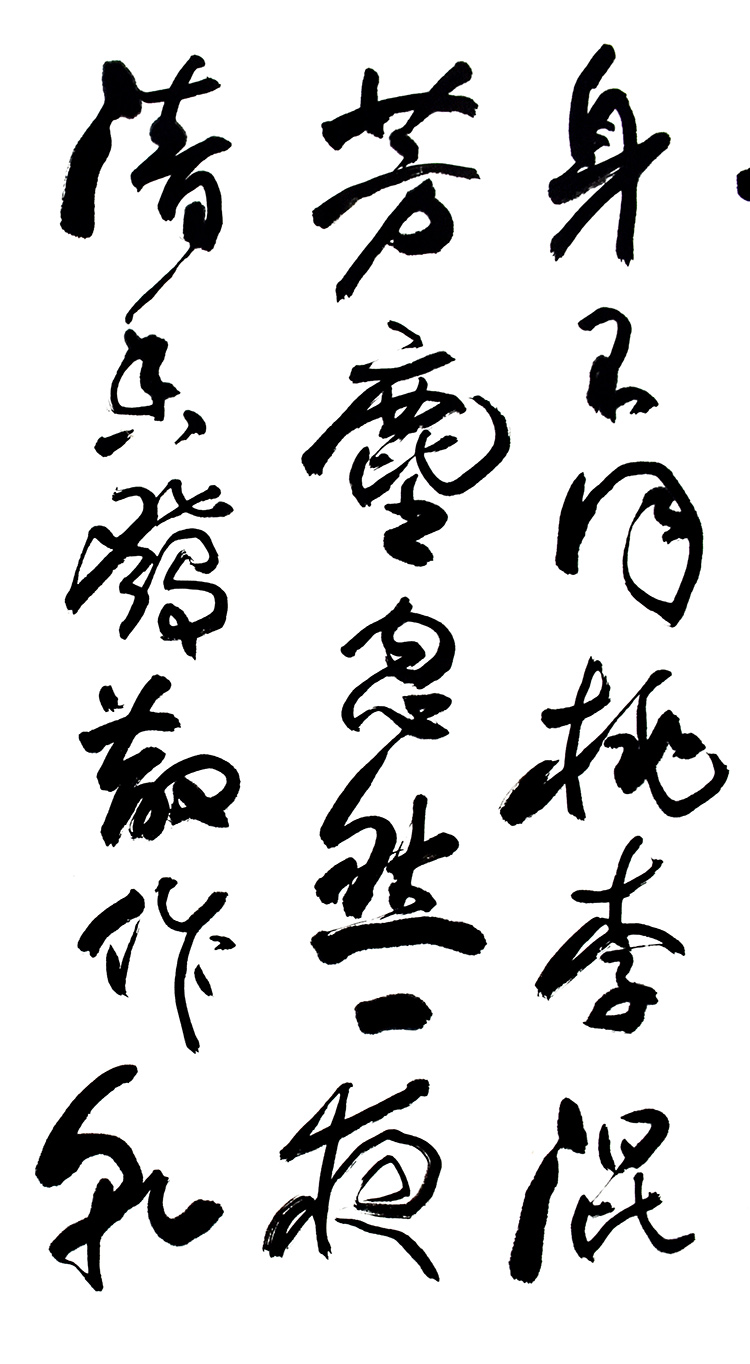 身不同桃李混
芳塵忽然一夜
清香發散作乾